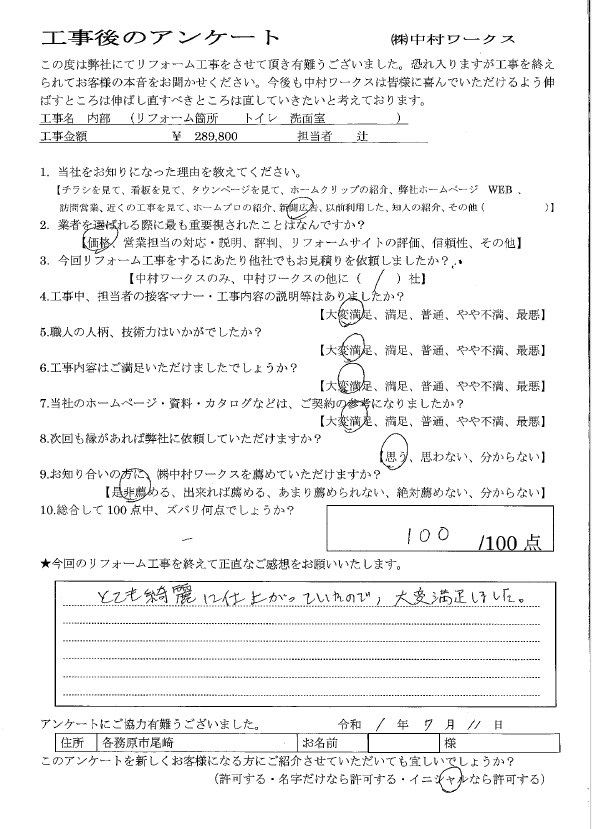 工事後のアンケート ㈱中村ワークス
この度は弊社にてリフォーム工事をさせて頂き有難うございました。恐れ入りますが工事を終え
られてお客様の本音をお聞かせください。今後も中村ワークスは皆様に喜んでいただけるよう伸
ばすところは伸ばし直すべきところは直していきたいと考えております。
工事名 内部 (リフォーム箇所 トイレ 洗面室 )
工事金額 ￥ 289,800 担当者 辻
1．当社をお知りになった理由を教えてください。
【チラシを見て、看板を見て、タウンページを見て、ホームクリップの紹介、弊社ホームページ WEB、
訪問営業、近くの工事を見て、ホームプロの紹介、新聞広告、以前利用した、知人の紹介、その他（ ）】
2．業者を選ばれる際に最も重要視されたことはなんですか？
【価格、営業担当の対応・説明、評判、リフォームサイトの評価、信頼性、その他】
3．今回リフォーム工事をするにあたり他社でもお見積りを依頼しましたか？
【中村ワークスのみ、中村ワークスの他に（ / ）社】
4.工事中、担当者の接客マナー・工事内容の説明等はありましたか？
【大変満足、満足、普通、やや不満、最悪】
5.職人の人柄、技術力はいかがでしたか？
【大変満足、満足、普通、やや不満、最悪】
6.工事内容はご満足いただけましたでしょうか？
【大変満足、満足、普通、やや不満、最悪】
7.当社のホームページ・資料・カタログなどは、ご契約の参考になりましたか？
【大変満足、満足、普通、やや不満、最悪】
8.次回も縁があれば弊社に依頼していただけますか？
【思う、思わない、分からない】
9.お知り合いの方に、㈱中村ワークスを薦めていただけますか？
【是非薦める、出来れば薦める、あまり薦められない、絶対薦めない、分からない】
10.総合して100点中、ズバリ何点でしょうか？
100 /100点
★今回のリフォーム工事を終えて正直なご感想をお願いいたします。
とても綺麗に仕上がっていたので，大変満足しました。
アンケートにご協力有難うございました。 令和 1 年 7 月 11 日
住所 各務原市尾崎 お名前 様
このアンケートを新しくお客様になる方にご紹介させていただいても宜しいでしょうか？
（許可する・名字だけなら許可する・イニシャルなら許可する）